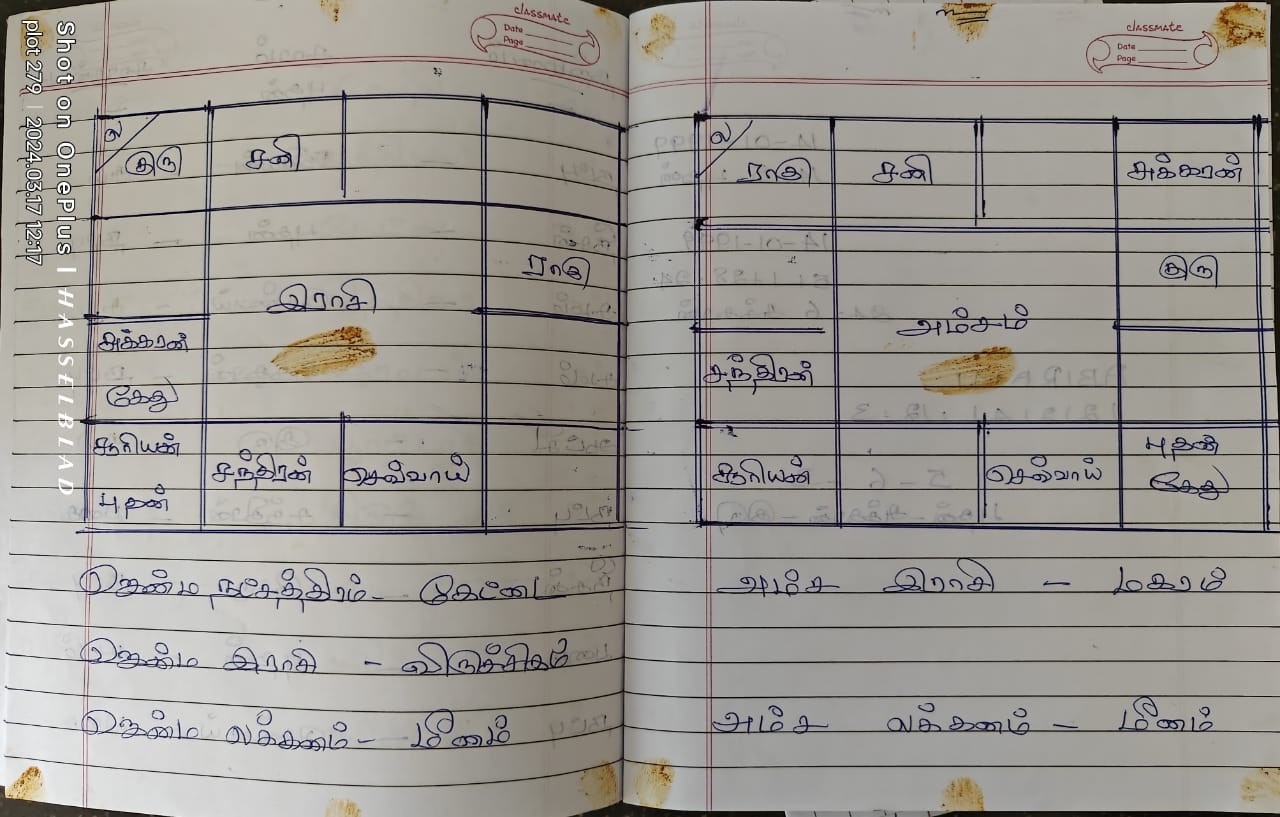 classmate
Date
Page
ல
குரு
சனி
ராகு
இராசி
சுக்கரன்
கேது
சூரியன்
புதன்
சந்திரன்
செவ்வாய்
ஜென்ம நட்சத்திரம் - கேட்டை
ஜென்ம இராசி - விருச்சிகம்
ஜென்ம லக்கனம் - மீனம்
classmate
Date
Page
ல
ராகு
சனி
சுக்கரன்
குரு
அம்சம்
சந்திரன்
சூரியன்
செவ்வாய்
புதன்
கேது
அம்ச இராசி - மகரம்
அம்ச லக்கனம் - மீனம்
Shot on OnePlus | HASSELBLAD
plot 279 | 2024.03.17 12:17